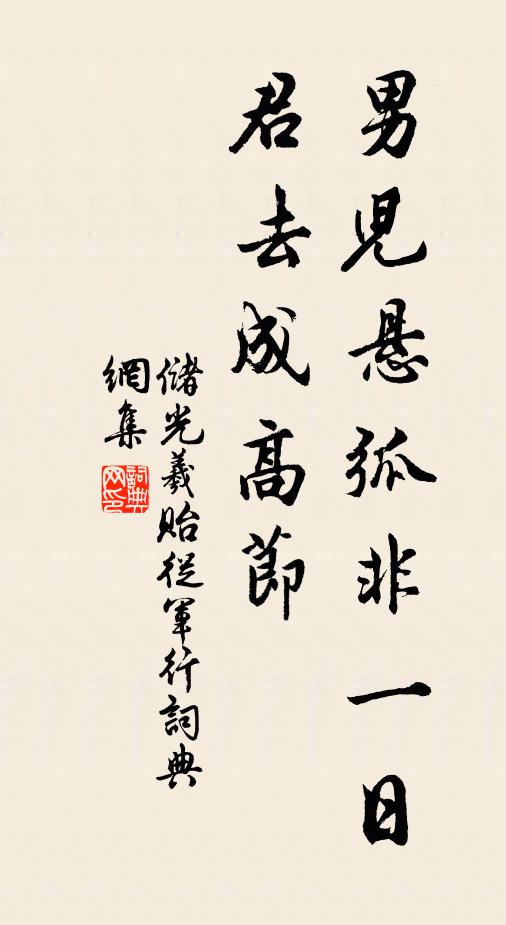 男児悬弧非一日
君去成高節
儲光羲貽從軍行詞典
網集
詞典
网印